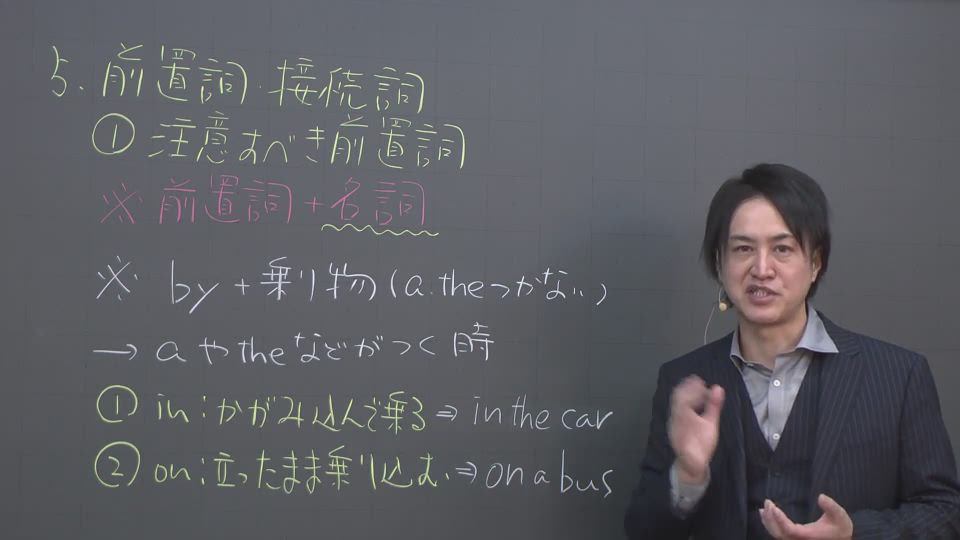 5. 前置詞・接続詞
① 注意すべき前置詞
※ 前置詞+名詞
※ by+乗り物(a.theつかない)
→ aやtheなどがつく時
① in:かがみ込んで乗る⇒in the car
② on:立ったまま乗り込む⇒on a bus